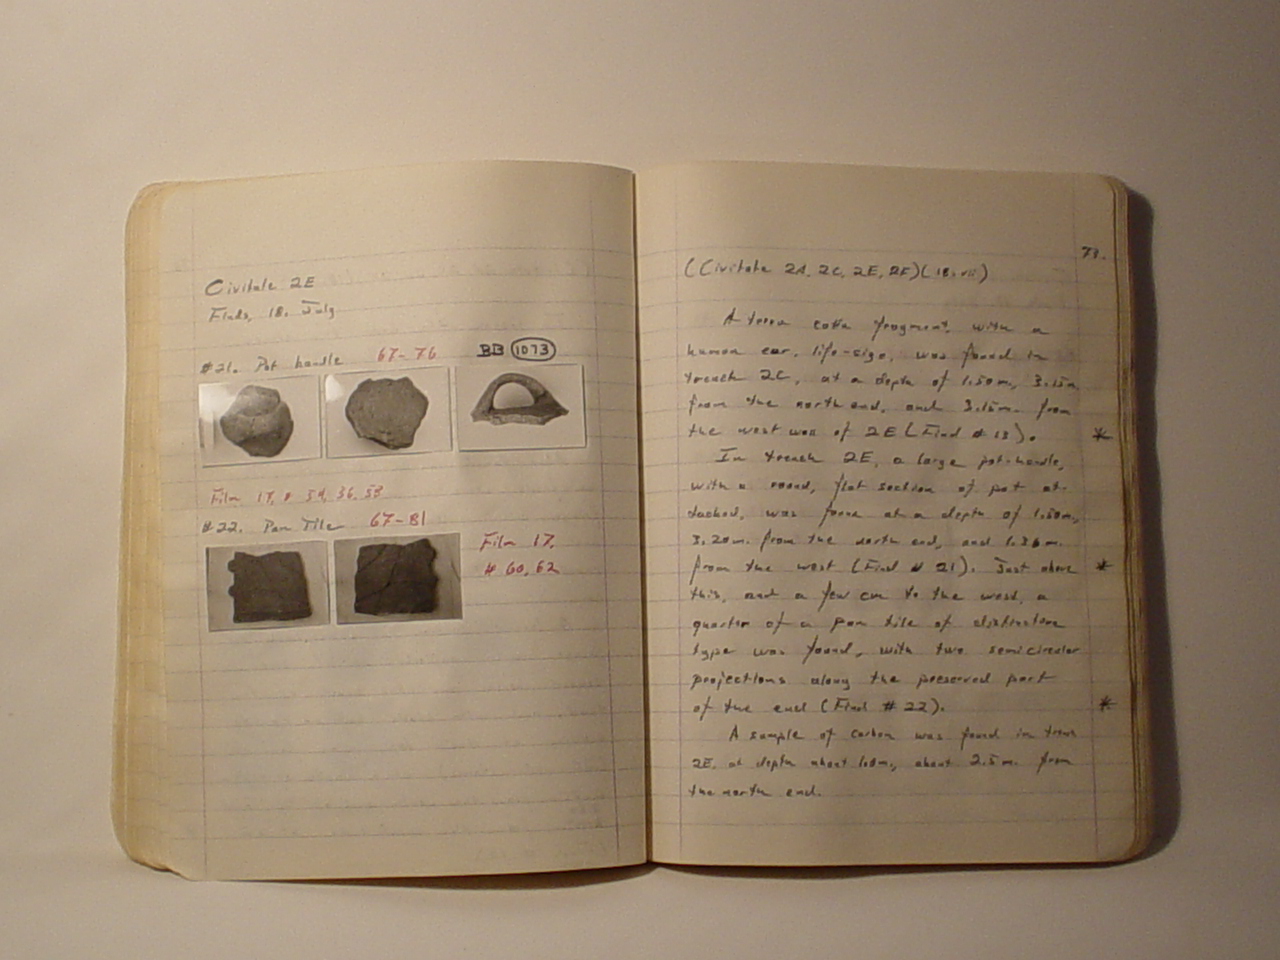 Civitate 2E
Finds, 18. July
#21. Pot handle 67-76 BB 1073
Film 17, # 36, 53
#22. Pan Tile 67-81
Film 17,
# 60, 62
73.
(Civitate 2A, 2C, 2E, 2F) (18.vii)
A terra cotta fragment, with a
human ear, life-size, was found in
trench 2C, at a depth of 1.50m, 3.15m
from the north end, and 3.15m. from
the west of 2E (Find # 13). *
In trench 2E, a large pot-handle,
with a round, flat section of pot at-
tached, was found at a depth of 1.50m,
3.20m. from the north end, and 1.36m.
from the west (Find # 21). Just above *
this, and a few cm to the west, a
quarter of a pan tile of distinctive
type was found, with two semicircular
projections along the preserved part
of the end (Find # 22). *
A sample of carbon was found in
2E, at depth about about 2.5m. from
the north end.